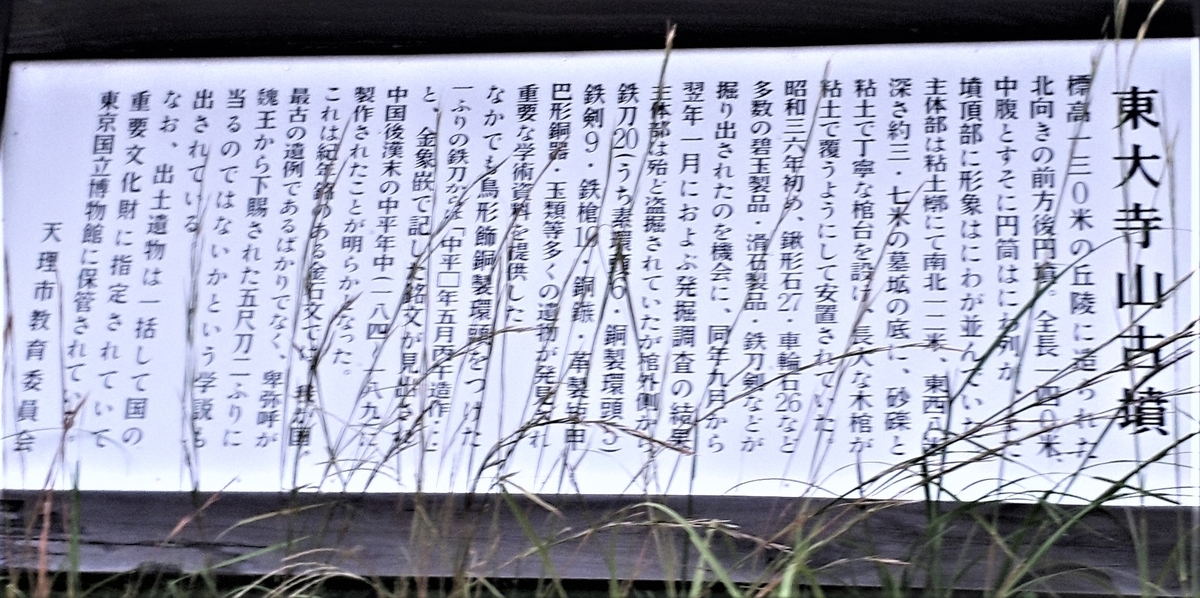 東大寺山古墳
標高一三〇米の丘陵に造られた
北向きの前方後円墳。全長一四〇米、
中腹とすそに円筒はにわ列が、
墳頂部に形象はにわが並んでいた
主体部は粘土槨にて南北一二米、東西八米
深さ約三・七米の墓壙の底に、砂礫と
粘土で丁寧な棺台を設け、長大な木棺が
粘土で覆うようにして安置されていた。
昭和三六年初め、鍬形石27・車輪石26など
多数の碧玉製品・滑石製品・鉄刀剣などが
掘り出されたのを機会に、同年九月から
翌年一月におよぶ発掘調査の結果
主体部は殆ど盗掘されていたが棺外側から
鉄刀20(うち素環頭6・銅製環頭5)
鉄剣9・鉄槍10・銅鏃・革製短甲
巴形銅器・玉類等多くの遺物が発見され
重要な学術資料を提供した
なかでも鳥形飾銅製環頭をつけた
一ふりの鉄刀からは「中平□年五月丙午造作…」
と、金象嵌で記した銘文が見出され
中国後漢末の中平年中(一八四〜一八九)に
製作されたことが明らかとなった。
これは紀年銘のある金石文では、我が国
最古の遺例であるばかりでなく、卑弥呼が
魏王から下賜された五尺刀二ふりに
当るのではないかという学説も
出されている
なお、出土遺物は一括して国の
重要文化財に指定されていて
東京国立博物館に保管されてい
天理市教育委員会